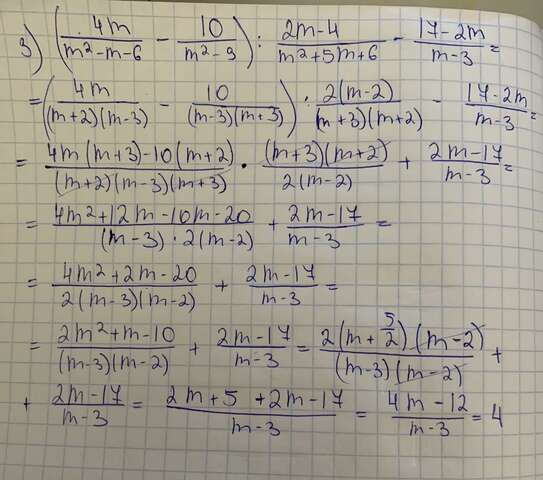 3) (4m/(m²-m-6) - 10/(m²-9)) : (2m-4)/(m²+5m+6) - (17-2m)/(m-3) =
= (4m/((m+2)(m-3)) - 10/((m-3)(m+3))) : 2(m-2)/((m+3)(m+2)) - (17-2m)/(m-3) =
= (4m(m+3)-10(m+2))/((m+2)(m-3)(m+3)) · (m+3)(m+2)/(2(m-2)) + (2m-17)/(m-3) =
= (4m²+12m-10m-20)/((m-3)·2(m-2)) + (2m-17)/(m-3) =
= (4m²+2m-20)/(2(m-3)(m-2)) + (2m-17)/(m-3) =
= (2m²+m-10)/((m-3)(m-2)) + (2m-17)/(m-3) = 2(m+5/2)(m-2)/((m-3)(m-2)) +
+ (2m-17)/(m-3) = (2m+5+2m-17)/(m-3) = (4m-12)/(m-3) = 4